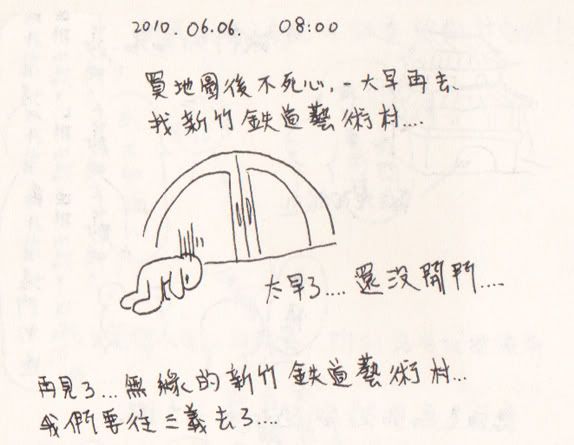 2010.06.06. 08:00
買地圖後不死心,一大早再去
找新竹鉄道藝術村....
太早了....還沒開門....
再見了...無緣的新竹鉄道藝術村...
我們要往三義去了....